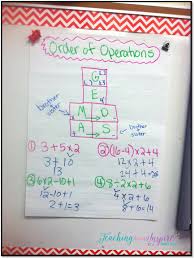 Order of Operations
G
E
M D
A S
brother
sister
brother
sister
① 3+5x2
3+10
13
② (16-4)x2+4
12x2+4
24+4=28
③ 6x2-10+1
12-10+1
2+1=3
④ 8÷2x2+6
4x2+6
8+6=14
Teaching to Inspire